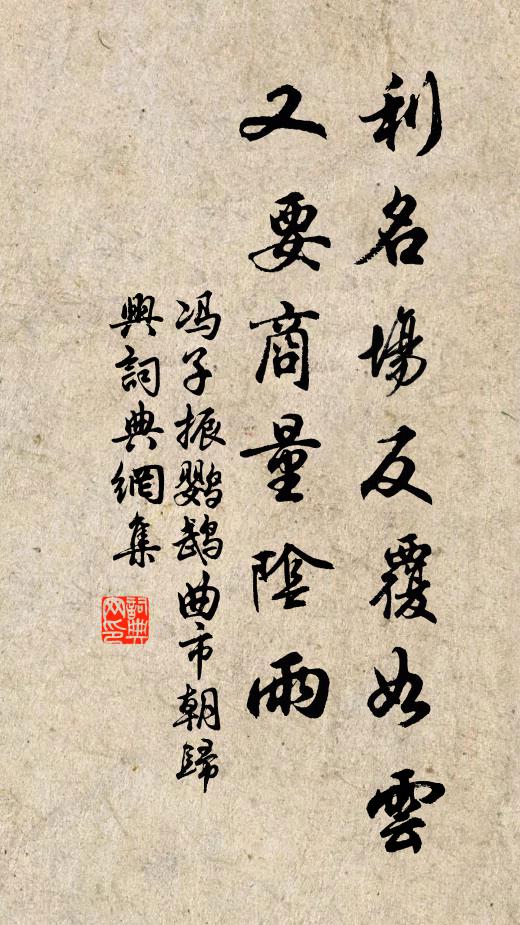 利名場反覆如雲
又要商量陰雨
冯子振鹦鹉曲市朝歸
興詞典網集
詞典網印